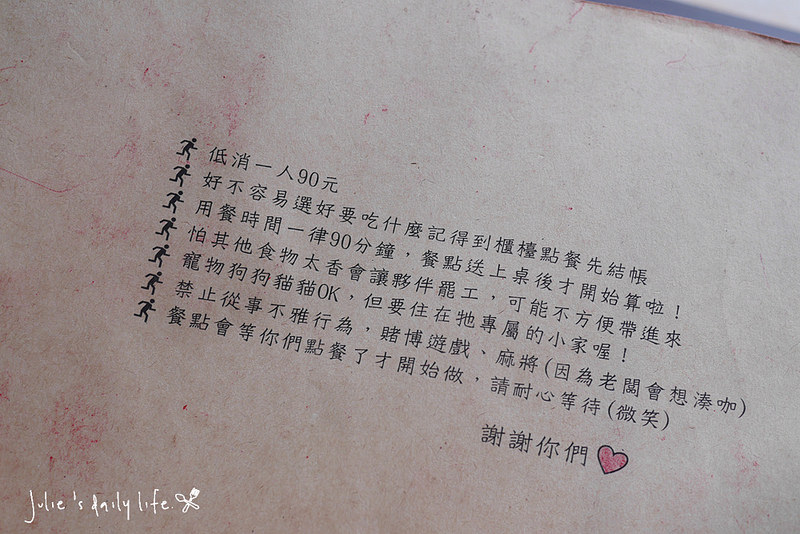 低消一人90元
好不容易選好要吃什麼記得到櫃檯點餐先結帳
用餐時間一律90分鐘，餐點送上桌後才開始算啦！
怕其他食物太香會讓夥伴罷工，可能不方便帶進來
寵物狗狗貓貓OK，但要住在牠專屬的小家喔！
禁止從事不雅行為，賭博遊戲、麻將(因為老闆會想湊咖)
餐點會等你們點餐了才開始做，請耐心等待(微笑)
謝謝你們
Julie's daily life.